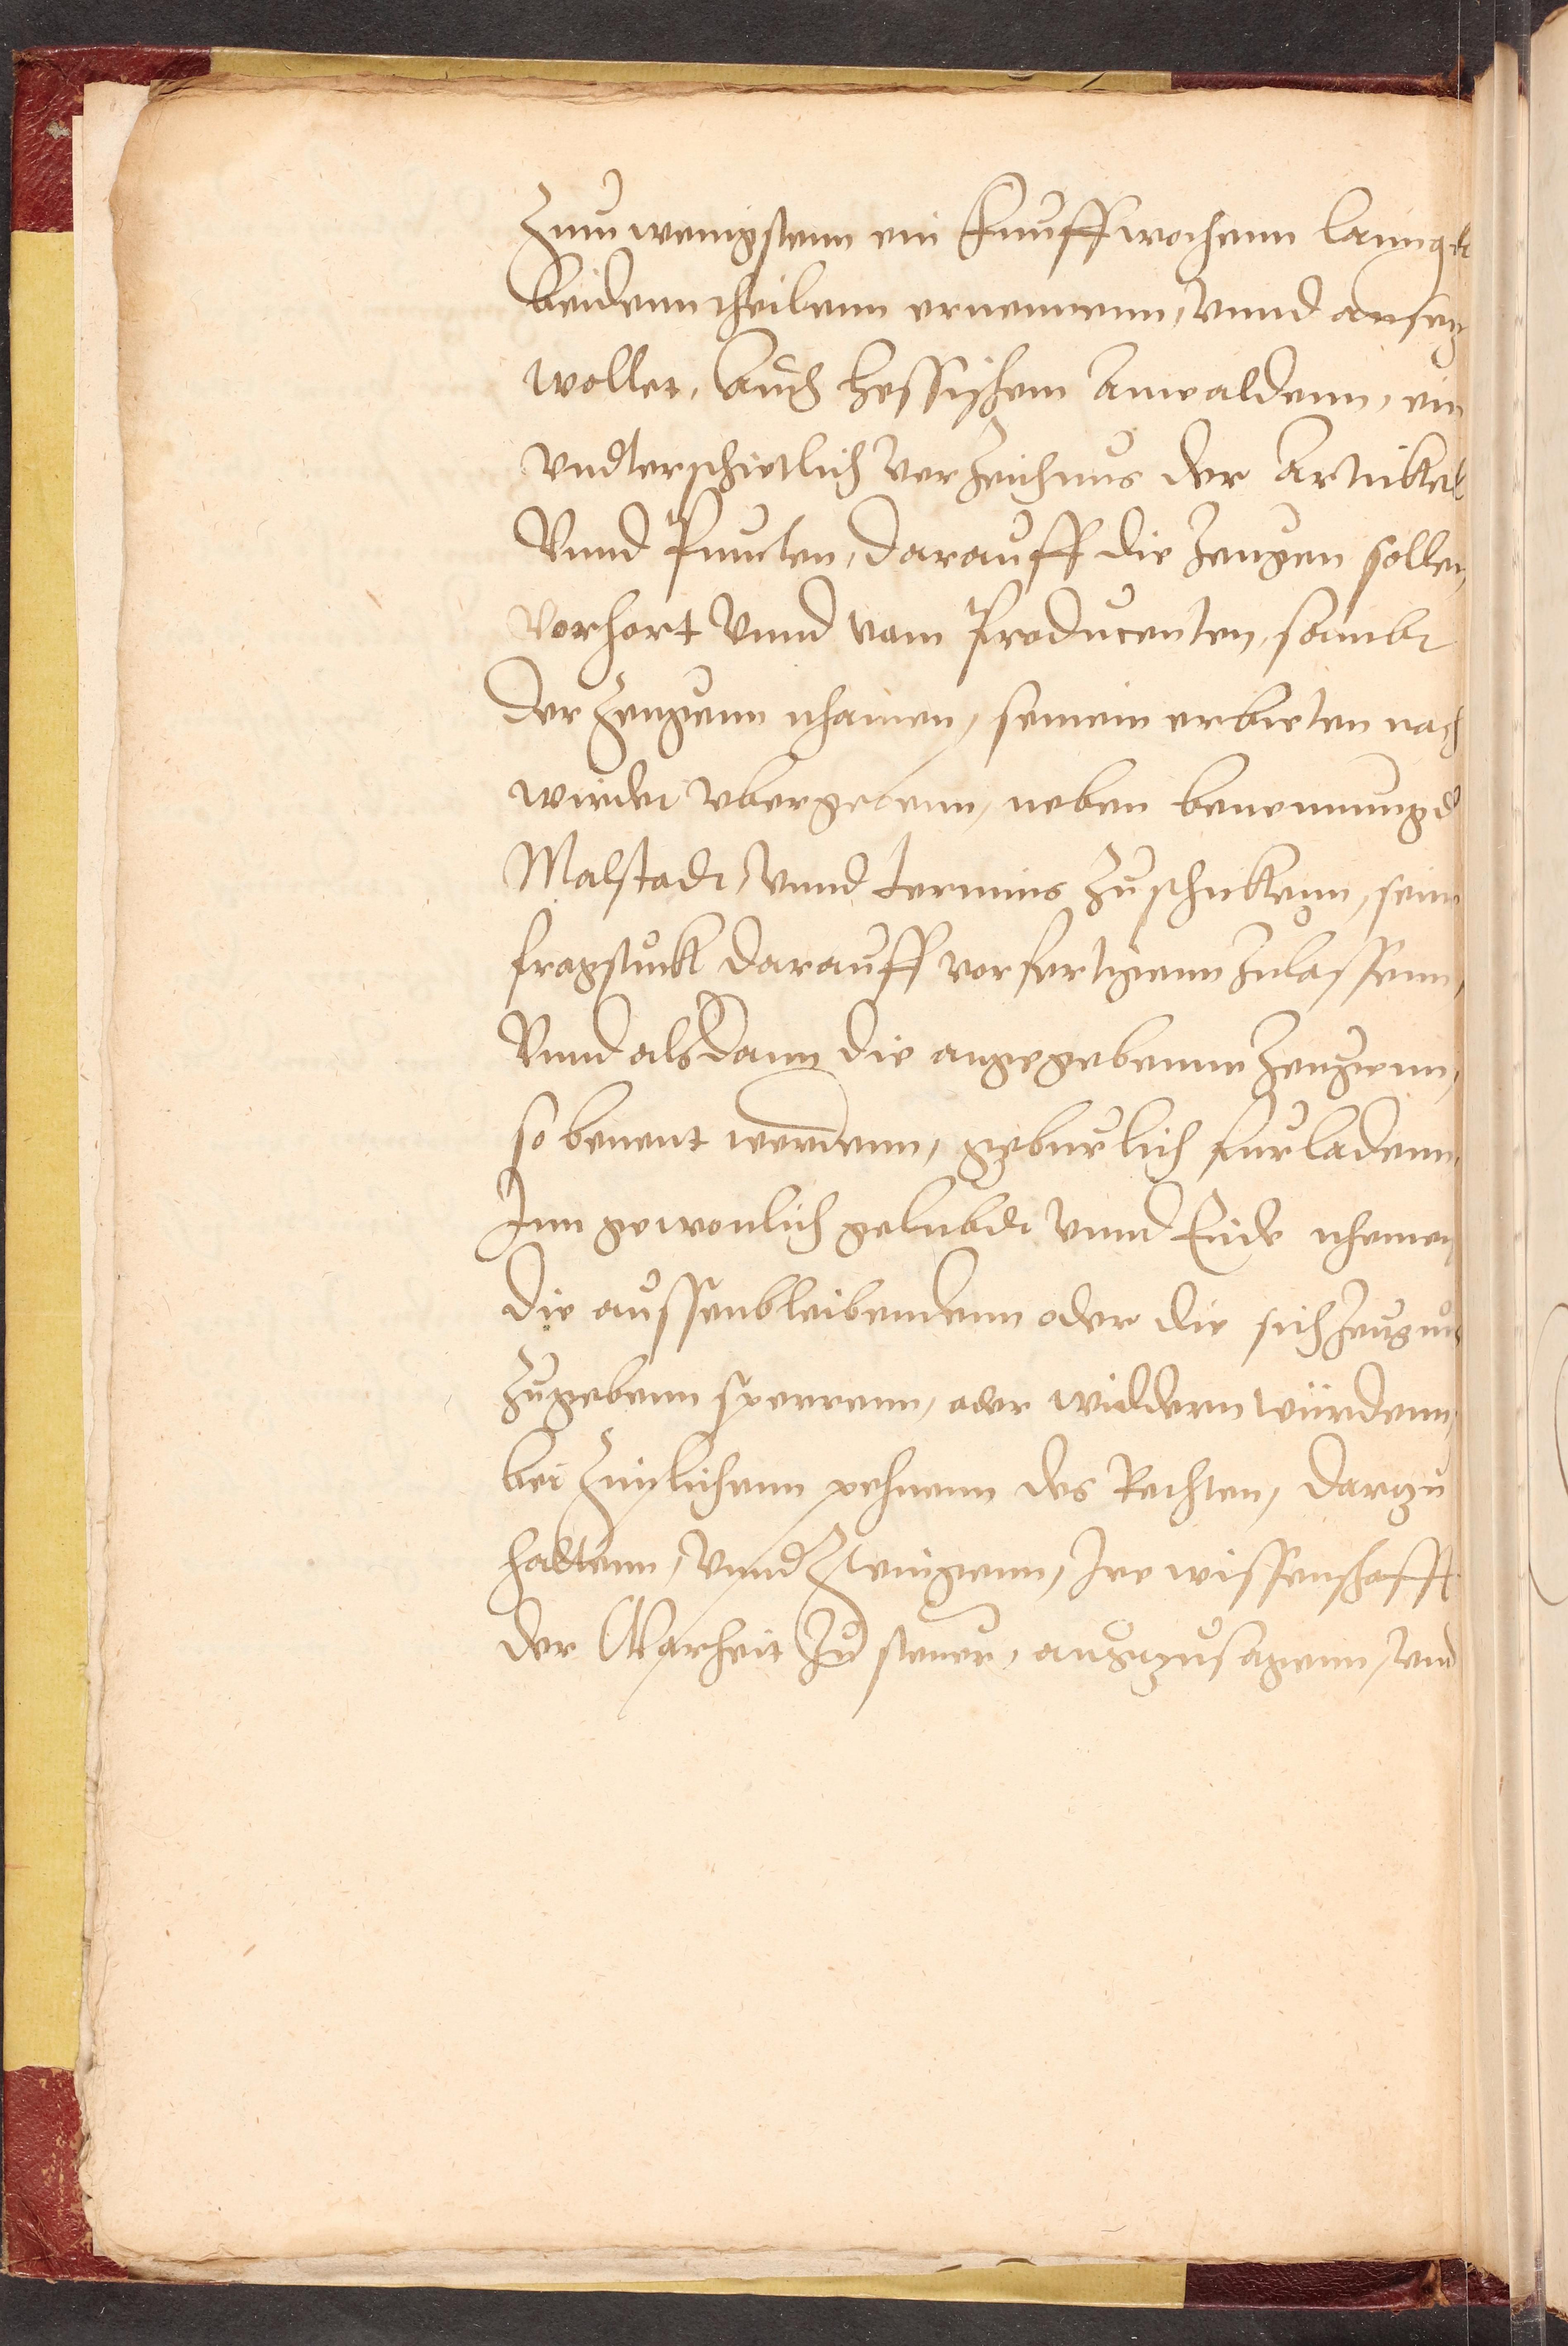 Zum wenigstenn ein Funffwochenn lanngk
beidenn theilenn ernennenn, vnnd ansetz
wollet, Auch Hessischem Anwaldenn, ein
vndterschietlich verzeichnus der Artickel
Vnnd Puncten, darauff die Zeugen sollen,
Vorhort vnnd vom Producenten, sambt
der Zeugenn nhamen, seinem erbieten nach
wirdet vbergebenn, neben benennung d
Malstadt, vnnd termins zuschickenn, sein
fragstuck darauff vorfertigenn Zulassenn,
Vnnd alsdann die angegebenne Zeugenn,
so benent werdenn, geburlich furladenn,
Inn gewonlich gelubdt vnnd Eide nhemen
die aussenbleibendenn oder die sich Zeugnus
Zugebenn sperrenn, oder widdern würdenn,
bei Zimlichenn pehnenn des Rechten, dartzu
haltenn, vnnd Zwingenn, Ire wissenschafft
der Warheit Zu steuer, ausztzusagenn, vnd